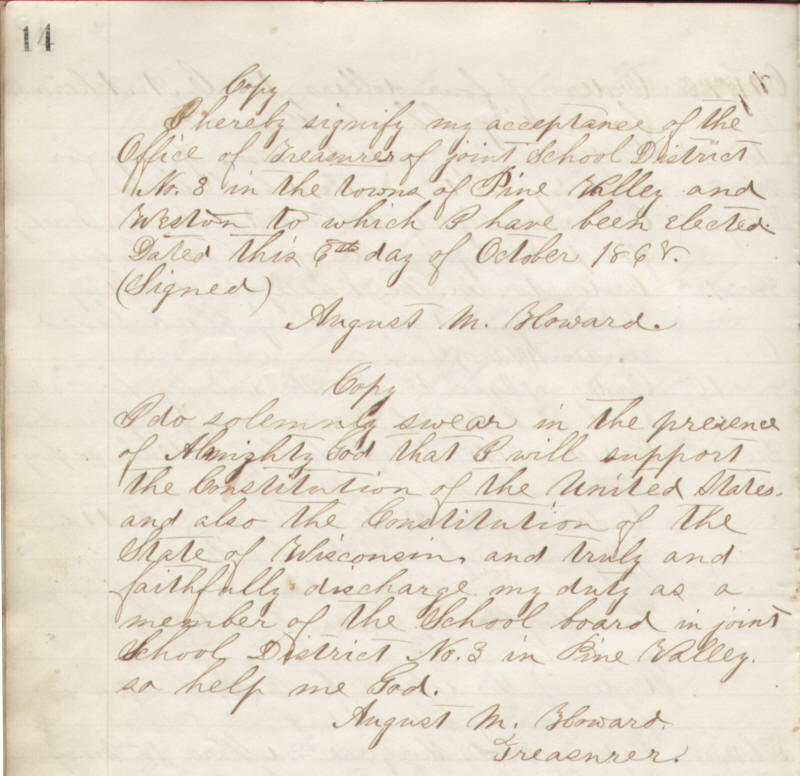 14
Copy
I hereby signify my acceptance of the
Office of Treasurer of joint School District
No. 3 in the towns of Pine Valley and
Weston to which I have been elected.
Dated this 6th day of October 1868.
(Signed)
August M. Howard.
Copy
I do solemnly swear in the presence
of Almighty God that I will support
the Constitution of the United States.
and also the Constitution of the
State of Wisconsin, and truly and
faithfully discharge my duty as a
member of the School board in joint
School District No. 3 in Pine Valley.
so help me God.
August M. Howard.
Treasurer.